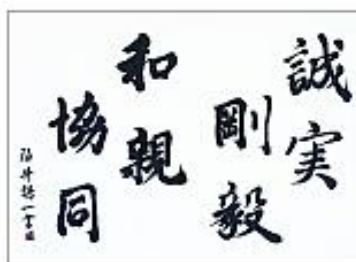 誠実
剛毅
和親
協同